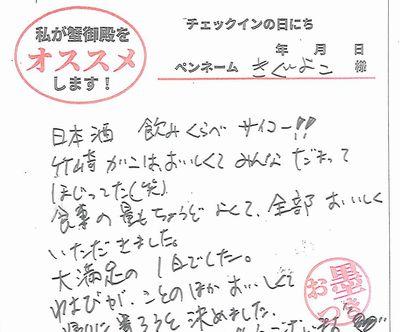 私が蟹御殿を
オススメ
します！
チェックインの日にち
年 月 日
ペンネーム さくよこ 様
日本酒 飲みくらべ サイコー!!
竹崎がにはおいしくてみんなだまって
ほじってた(笑)
食事の量もちょうどよくて、全部おいしく
いただきました。
大満足の1日でした。
わさびが、ことのほかおいしくて
帰りに買ろうと決めました。
お墨